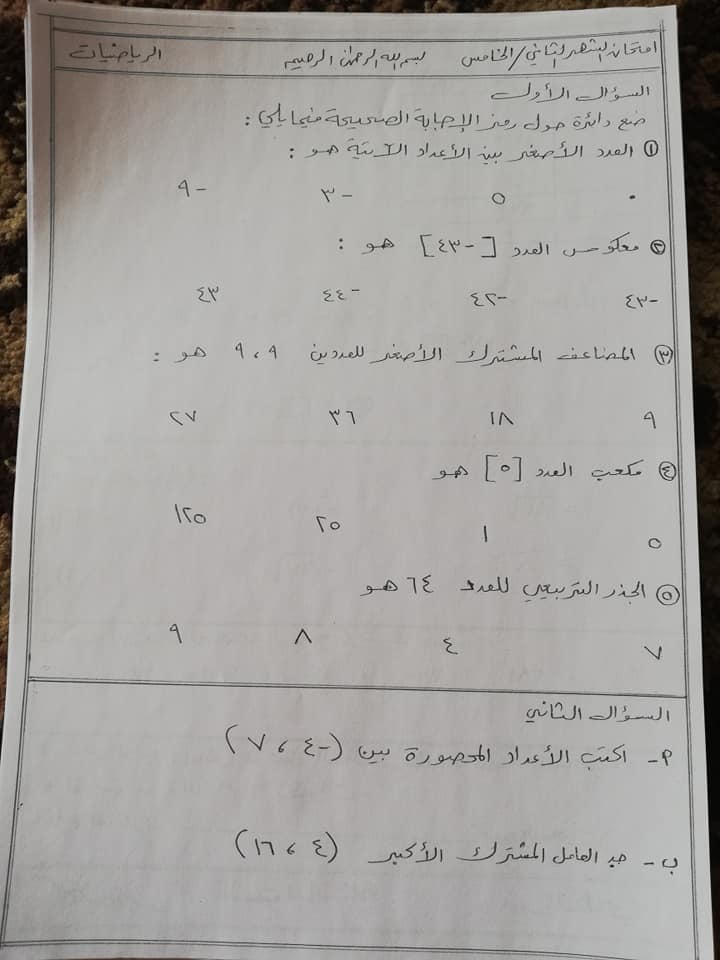 امتحان الشهر الثاني/الخامس بسم الله الرحمن الرحيم الرياضيات
السؤال الأول
ضع دائرة حول رمز الإجابة الصحيحة فيما يلي :
١ العدد الأصغر بين الأعداد الآتية هو :
٠ ٥ -٣ -٩
٢ معكوس العدد [-٤٣] هو :
-٤٣ -٤٢ -٤٤ ٤٣
٣ المضاعف المشترك الأصغر للعددين ٩ ، ٩ هو :
٩ ١٨ ٣٦ ٢٧
٤ مكعب العدد [٥] هو
٥ ١ ٢٥ ١٢٥
٥ الجذر التربيعي للعدد ٦٤ هو
٧ ٤ ٨ ٩
السؤال الثاني
أ- اكتب الأعداد المحصورة بين (-٤ ، ٧)
ب- جد العامل المشترك الأكبر (٤ ، ١٦)